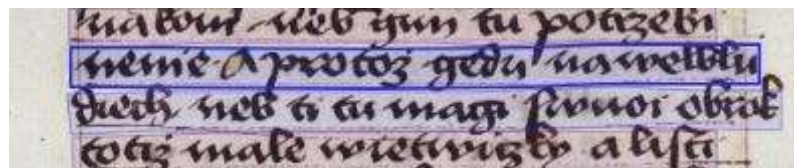 nakoni neb gim tu potrzebi
nenie A protoz gedu na welblu
diech neb ti tu magi swuoi obrok
totiz male wietwiczky a listi